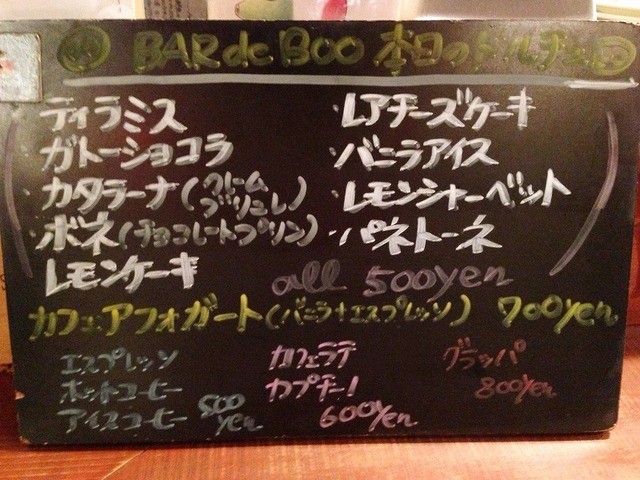 BAR de BOO 本日のドルチェ
ティラミス
ガトーショコラ
カタラーナ(クレームブリュレ)
ボネ(チョコレートプリン)
レモンケーキ
・レアチーズケーキ
・バニラアイス
・レモンシャーベット
・パネトーネ
all 500yen
カフェアフォガート(バニラ+エスプレッソ) 700yen
エスプレッソ
ホットコーヒー
アイスコーヒー 500yen
カフェラテ
カプチーノ
600yen
グラッパ
800yen